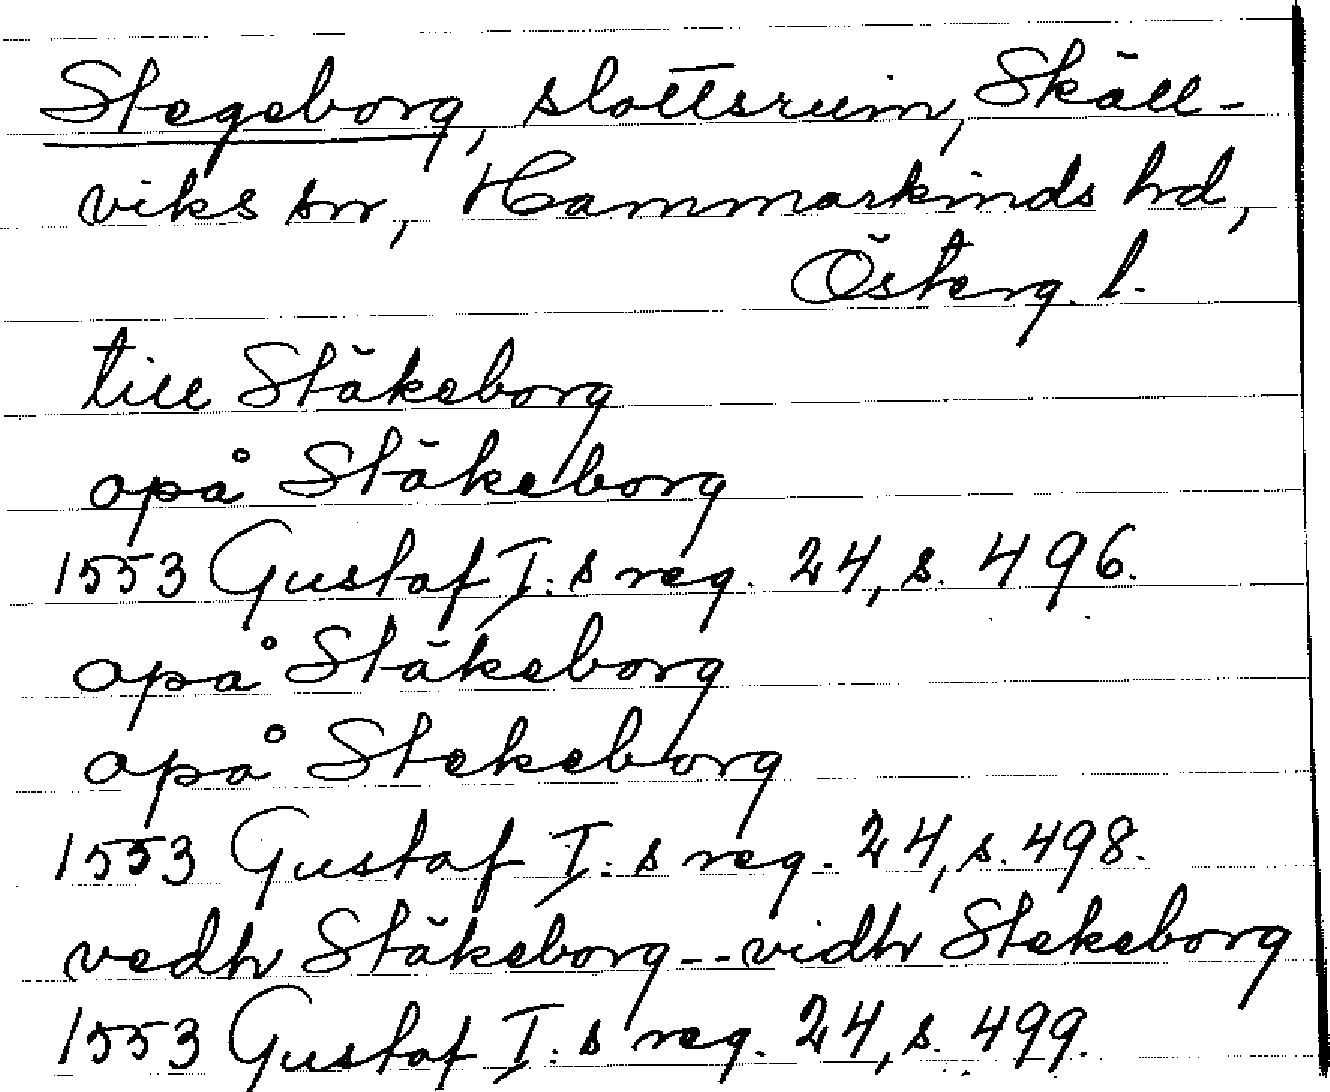 Stegeborg, slottsruin, Skäll-
viks sn, Hammarkinds hd,
Österg. l.
till Stäkeborg
opå Stäkeborg
1553 Gustaf I:s reg. 24, s. 496.
opå Stäkeborg
opå Stekeborg
1553 Gustaf I:s reg. 24, s. 498.
vedh Stäkeborg -- vidh Stekeborg
1553 Gustaf I:s reg. 24, s. 499.